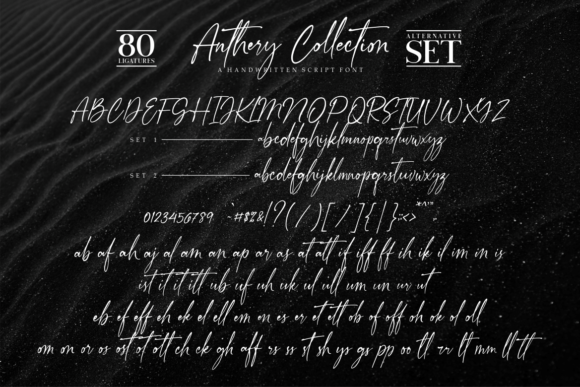 80
LIGATURES
Anthery Collection
A HANDWRITTEN SCRIPT FONT
ALTERNATIVE
SET
ABCDEFGHIJKLMNOPQRSTUVWXYZ
SET 1 abcdefghijklmnopqrstuvwxyz
SET 2 abcdefghijklmnopqrstuvwxyz
0123456789
ab af ah aj al am an ap ar as at att if iff ff ih ik il im in is
ist it it itt ub uf uh uk ul ull um un ur ut
eb ef eff eh ek el ell em on es er et ett ob of off oh ok ol oll
om on or os ost ot ott ch ck gh aff rs ss st sh ys gs pp oo tl rr lt mm ll tt